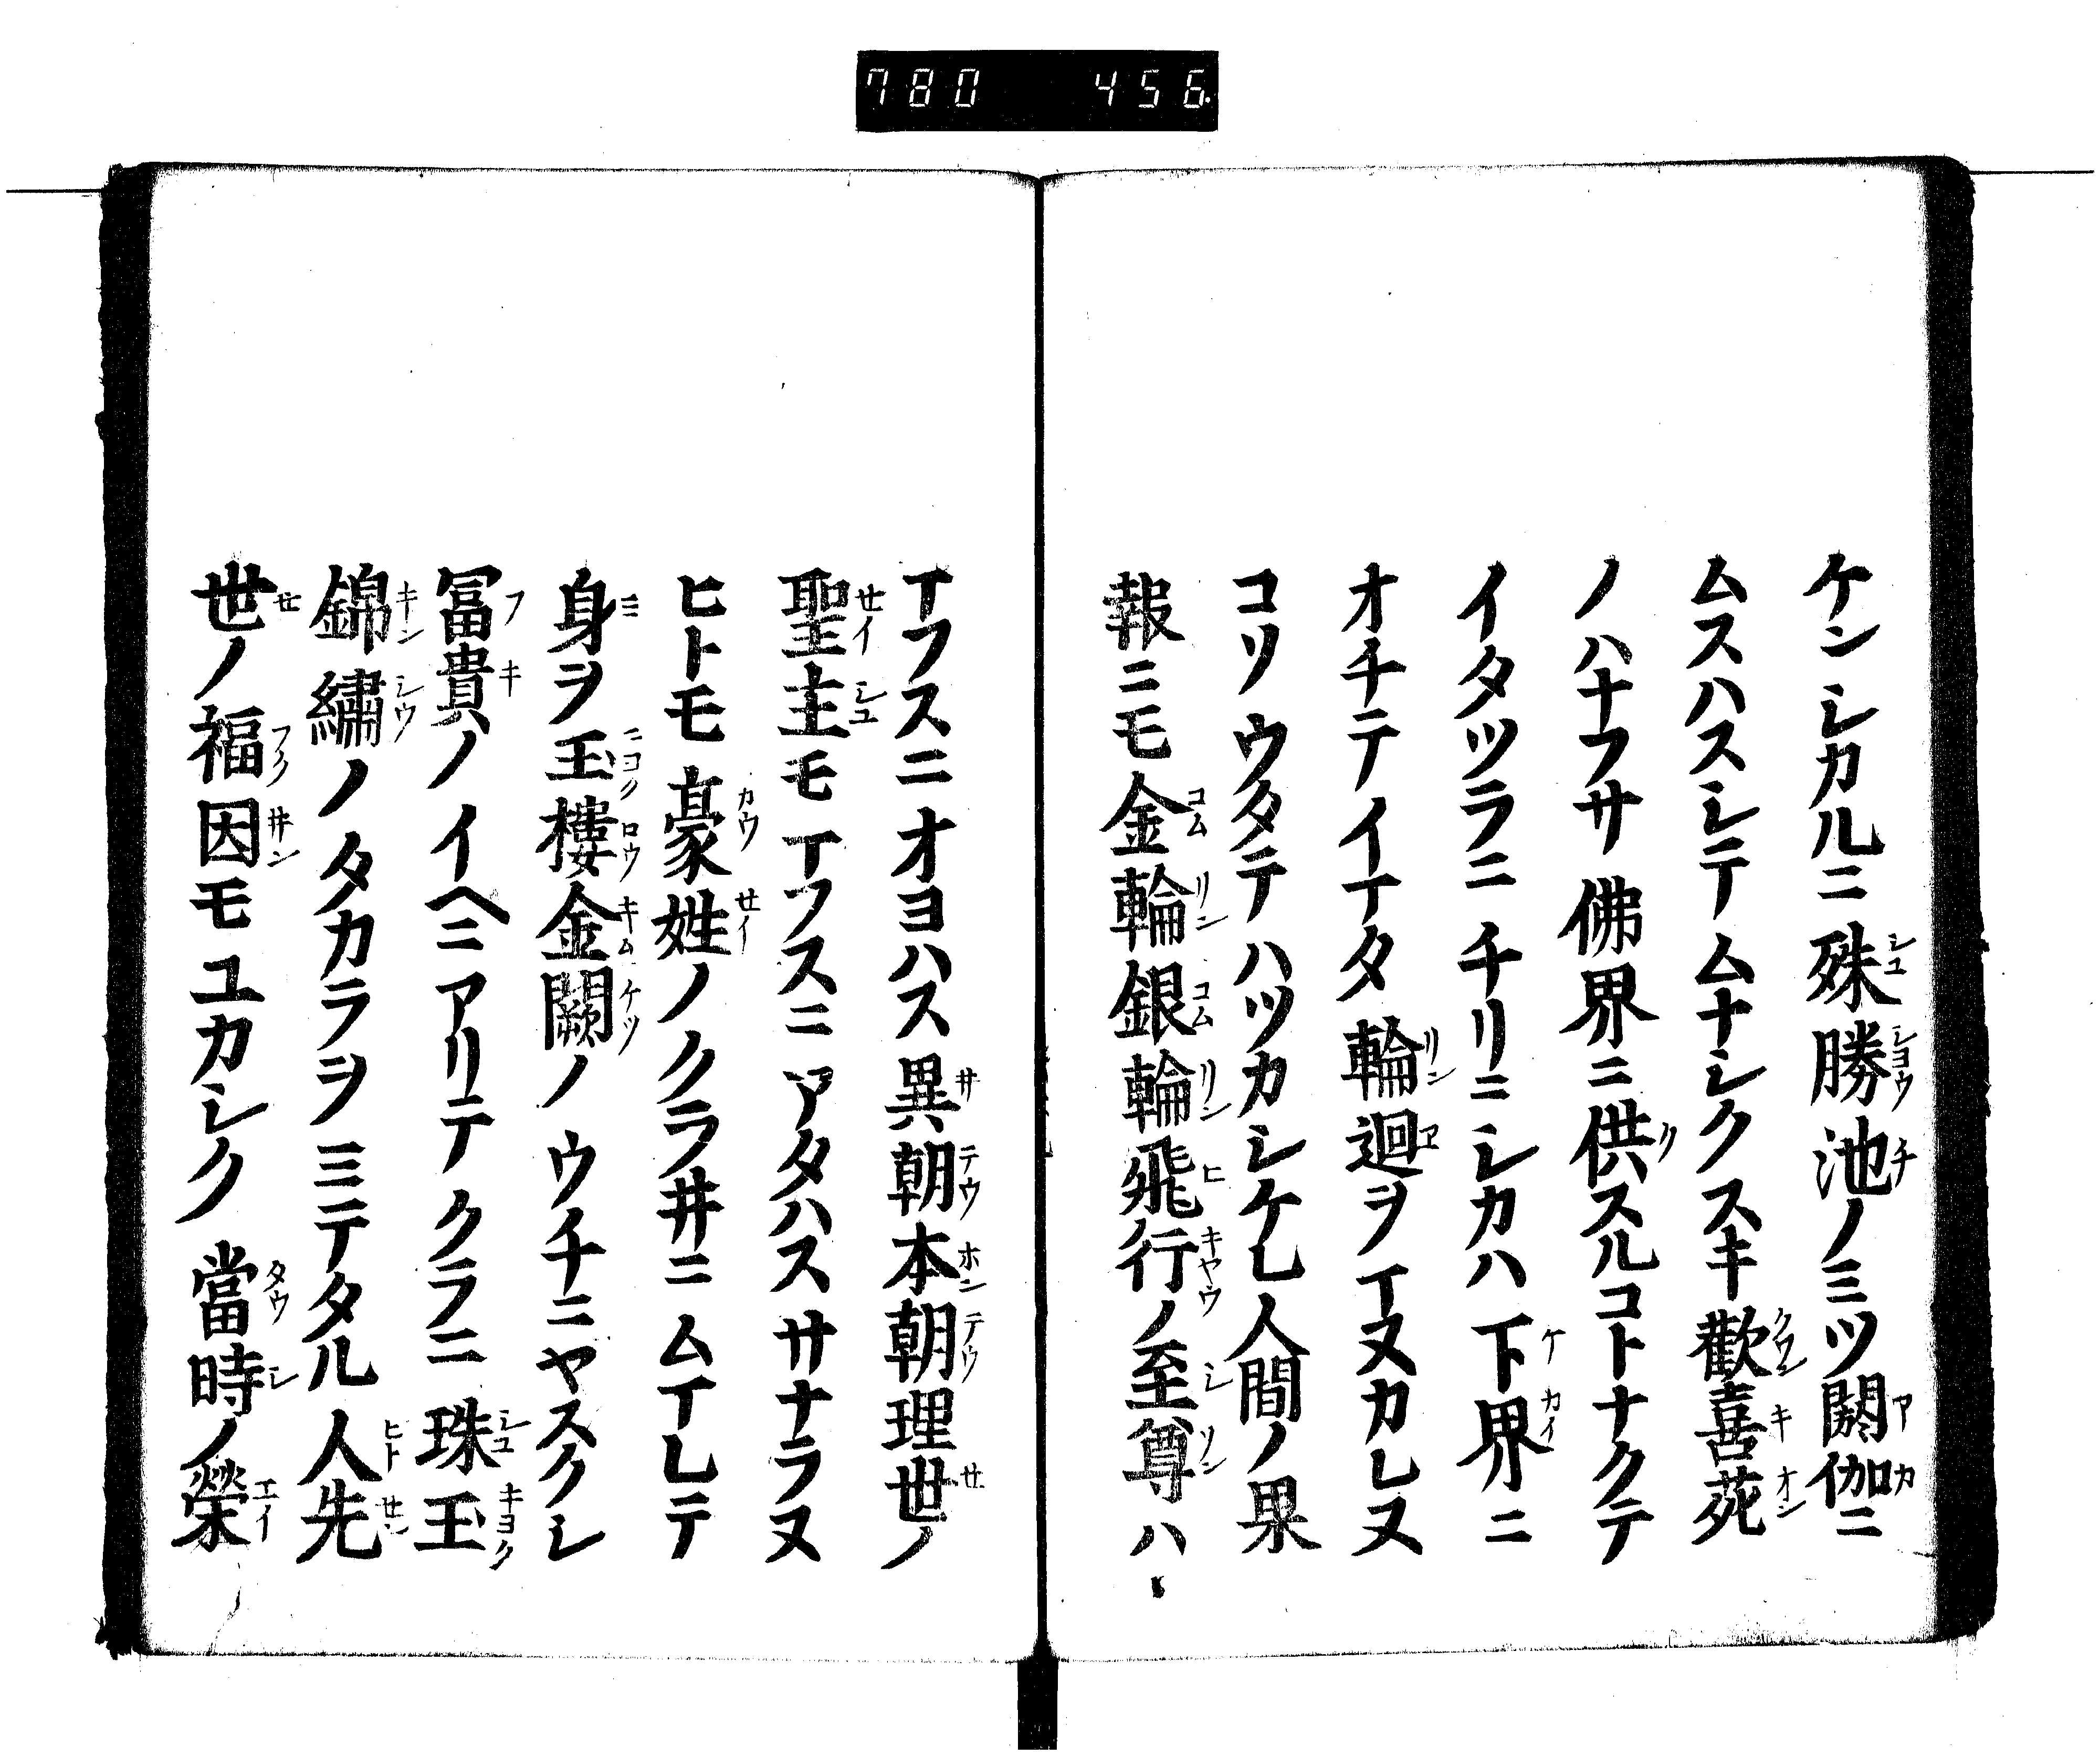 780 456
ケンシカルニ殊勝池ノミツ閼伽ニ
ムスハスシテムナシクスキ歡喜苑
ノハナフサ佛界ニ供スルコトナクテ
イタツラニチリニシカハ下界ニ
オチテイマタ輪迴ヲマヌカレヌ
コリウタテハツカシケレ人間ノ果
報ニモ金輪銀輪飛行ノ至尊ハ
マフスニオヨハス異朝本朝理世ノ
聖主モマフスニアタハスサナラヌ
ヒトモ豪姓ノクラ井ニムマレテ
身ヲ玉樓金闕ノウチニヤスクシ
冨貴ノイヘニアリテクラニ珠玉
錦繡ノタカラヲミテタル人先
世ノ福因モユカシク當時ノ榮